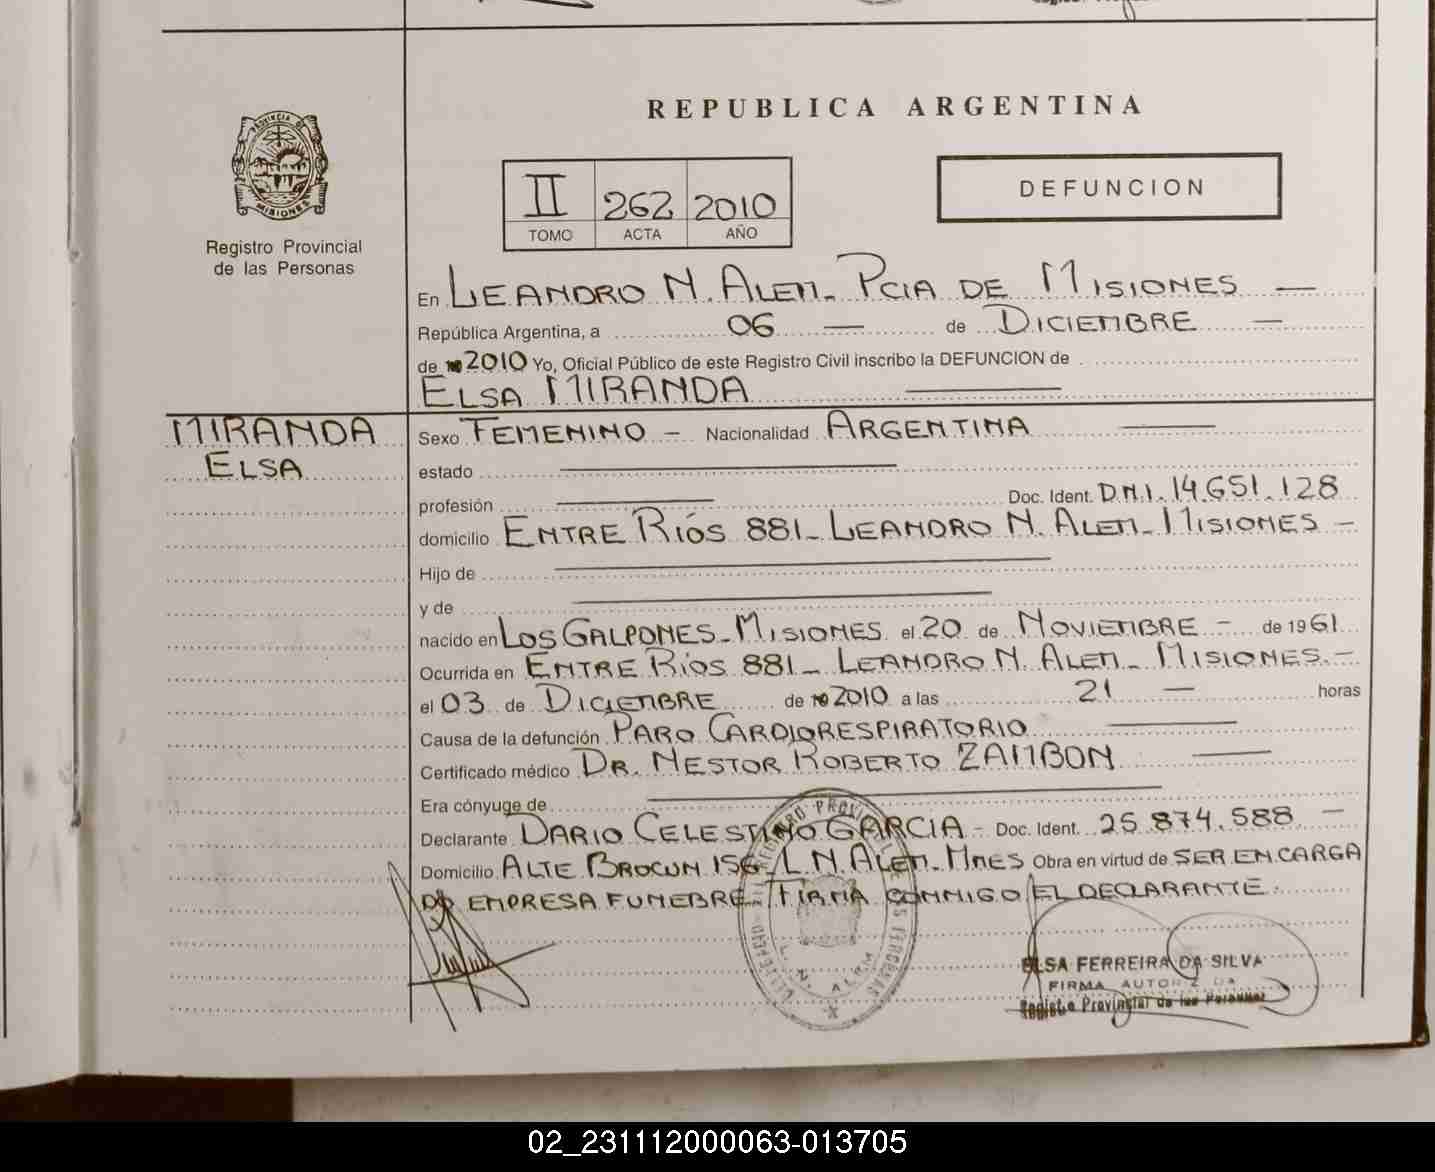 REPUBLICA ARGENTINA
PROVINCIA DE
MISIONES
Registro Provincial
de las Personas
II 262 2010
TOMO ACTA AÑO
DEFUNCION
En LEANDRO N. ALEM_ PCIA DE MISIONES —
República Argentina, a 06 — de DICIEMBRE —
de 2010 Yo, Oficial Público de este Registro Civil inscribo la DEFUNCION de
ELSA MIRANDA
MIRANDA
ELSA
Sexo FEMENINO - Nacionalidad ARGENTINA
estado
profesión Doc. Ident. D.N.I. 14.651.128
domicilio ENTRE RÍOS 881_ LEANDRO N. ALEM_ MISIONES -
Hijo de
y de
nacido en LOS GALPONES_ MISIONES el 20 de NOVIEMBRE - de 1961
Ocurrida en ENTRE RÍOS 881_ LEANDRO N. ALEM_ MISIONES.-
el 03 de DICIEMBRE de 2010 a las 21 — horas
Causa de la defunción PARO CARDIORESPIRATORIO
Certificado médico DR. NESTOR ROBERTO ZAMBON
Era cónyuge de
Declarante DARIO CELESTINO GARCIA - Doc. Ident. 25.874.588 -
Domicilio ALTE BROWN 156_ L.N. ALEM_ MNES Obra en virtud de SER ENCARGA
DO EMPRESA FUNEBRE_ FIRMA CONMIGO EL DECLARANTE.
REGISTRO PROVINCIAL DE LAS PERSONAS
L. N. ALEM
ELSA FERREIRA DA SILVA
FIRMA AUTORIZADA
Registro Provincial de las Personas
02_231112000063-013705